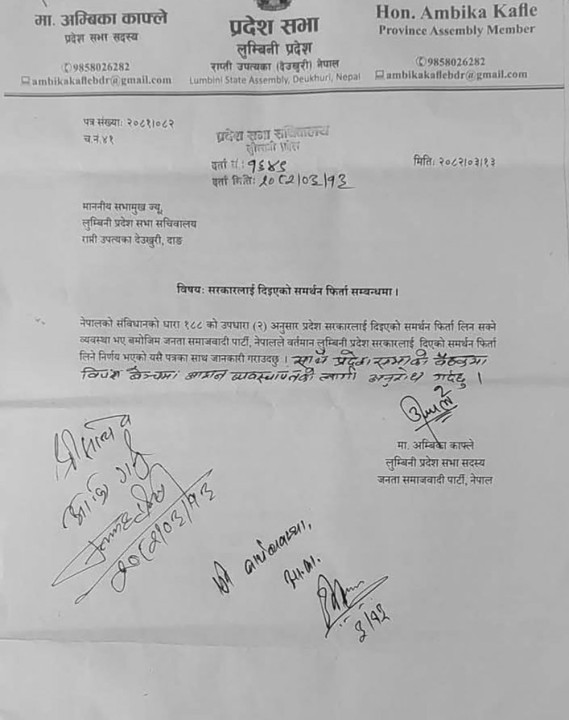 मा. अम्बिका काफ्ले
प्रदेश सभा सदस्य
✆9858026282
ambikakaflebdr@gmail.com
प्रदेश सभा
लुम्बिनी प्रदेश
राप्ती उपत्यका (देउखुरी) नेपाल
Lumbini State Assembly, Deukhuri, Nepal
Hon. Ambika Kafle
Province Assembly Member
✆9858026282
ambikakaflebdr@gmail.com
पत्र संख्या: २०८१।०८२
च.नं.४१
प्रदेश सभा सचिवालय
लुम्बिनी प्रदेश
दर्ता नं.: १६४९
दर्ता मिति: २०८२/०३/१३
मिति: २०८२/०३/१३
माननीय सभामुख ज्यू,
लुम्बिनी प्रदेश सभा सचिवालय
राप्ती उपत्यका देउखुरी, दाङ
विषय: सरकारलाई दिइएको समर्थन फिर्ता सम्बन्धमा ।
नेपालको संबिधानको धारा १८८ को उपधारा (२) अनुसार प्रदेश सरकारलाई दिइएको समर्थन फिर्ता लिन सक्ने
व्यवस्था भए बमोजिम जनता समाजवादी पार्टी, नेपालले वर्तमान लुम्बिनी प्रदेश सरकारलाई दिएको समर्थन फिर्ता
लिने निर्णय भएको यसै पत्रका साथ जानकारी गराउदछु । साथै प्रदेश सभाको बैठकमा
विपक्ष बेञ्चमा आसन व्यवस्थापनको लागी अनुरोध गर्दछु ।
मा. अम्बिका काफ्ले
लुम्बिनी प्रदेश सभा सदस्य
जनता समाजवादी पार्टी, नेपाल
२०८२/०३/१३
३/१३